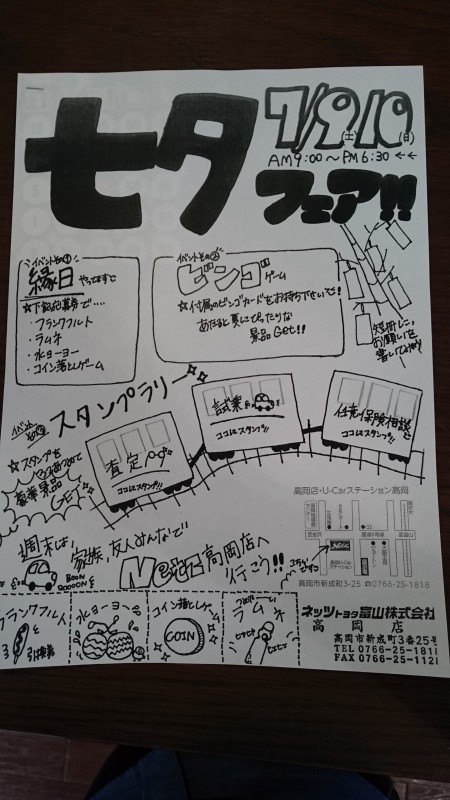 七夕
7/9(土)10(日)
AM9:00～PM6:30 ←←
フェア!!
イベントその①
縁日やってますで
☆下記応募券で‥‥
・フランクフルト
・ラムネ
・水ヨーヨー
・コイン落としゲーム
イベントその②
ビンゴゲーム
☆付属のビンゴカードをお持ち下さいで!
あたると夏にぴったりな
景品Get!!
短冊に、
お願いを
書いてみよう!
イベントその③
スタンプラリー
☆スタンプを
3つ集めて
豪華景品
GET
査定
ココにスタンプ!!
試乗
ココにスタンプ!!
任意保険相談
ココにスタンプ!!
週末は、家族、友人みんなで
Netz高岡店へ
行こう!!
BOON
高岡店・U-Carステーション高岡
高岡市新成町3-25 0766-25-1818
フランクフルト
引換券
水ヨーヨー
コイン落としゲーム
COIN
ラムネ
ネッツトヨタ富山株式会社
高岡店
高岡市新成町3番25号
TEL 0766-25-1818
FAX 0766-25-112